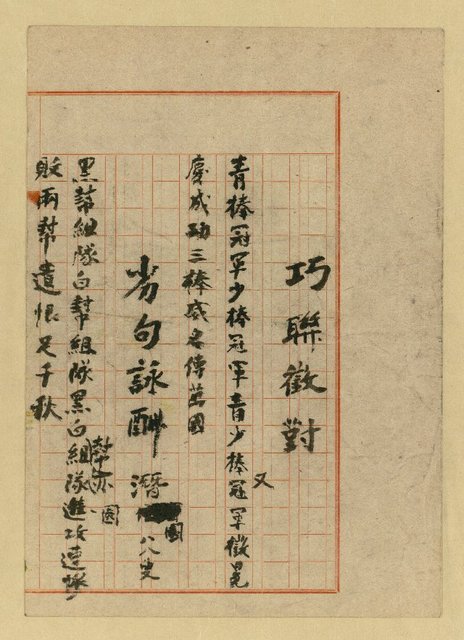 巧聯徵對
青棒冠軍少棒冠軍青少棒冠軍徵晃
又
慶成功三棒威名傳萬國
劣句詠酬潛園八叟
黑幇組隊白幇組隊黑白組隊進攻連隊
幇亦園
敗兩幇遺恨足千秋